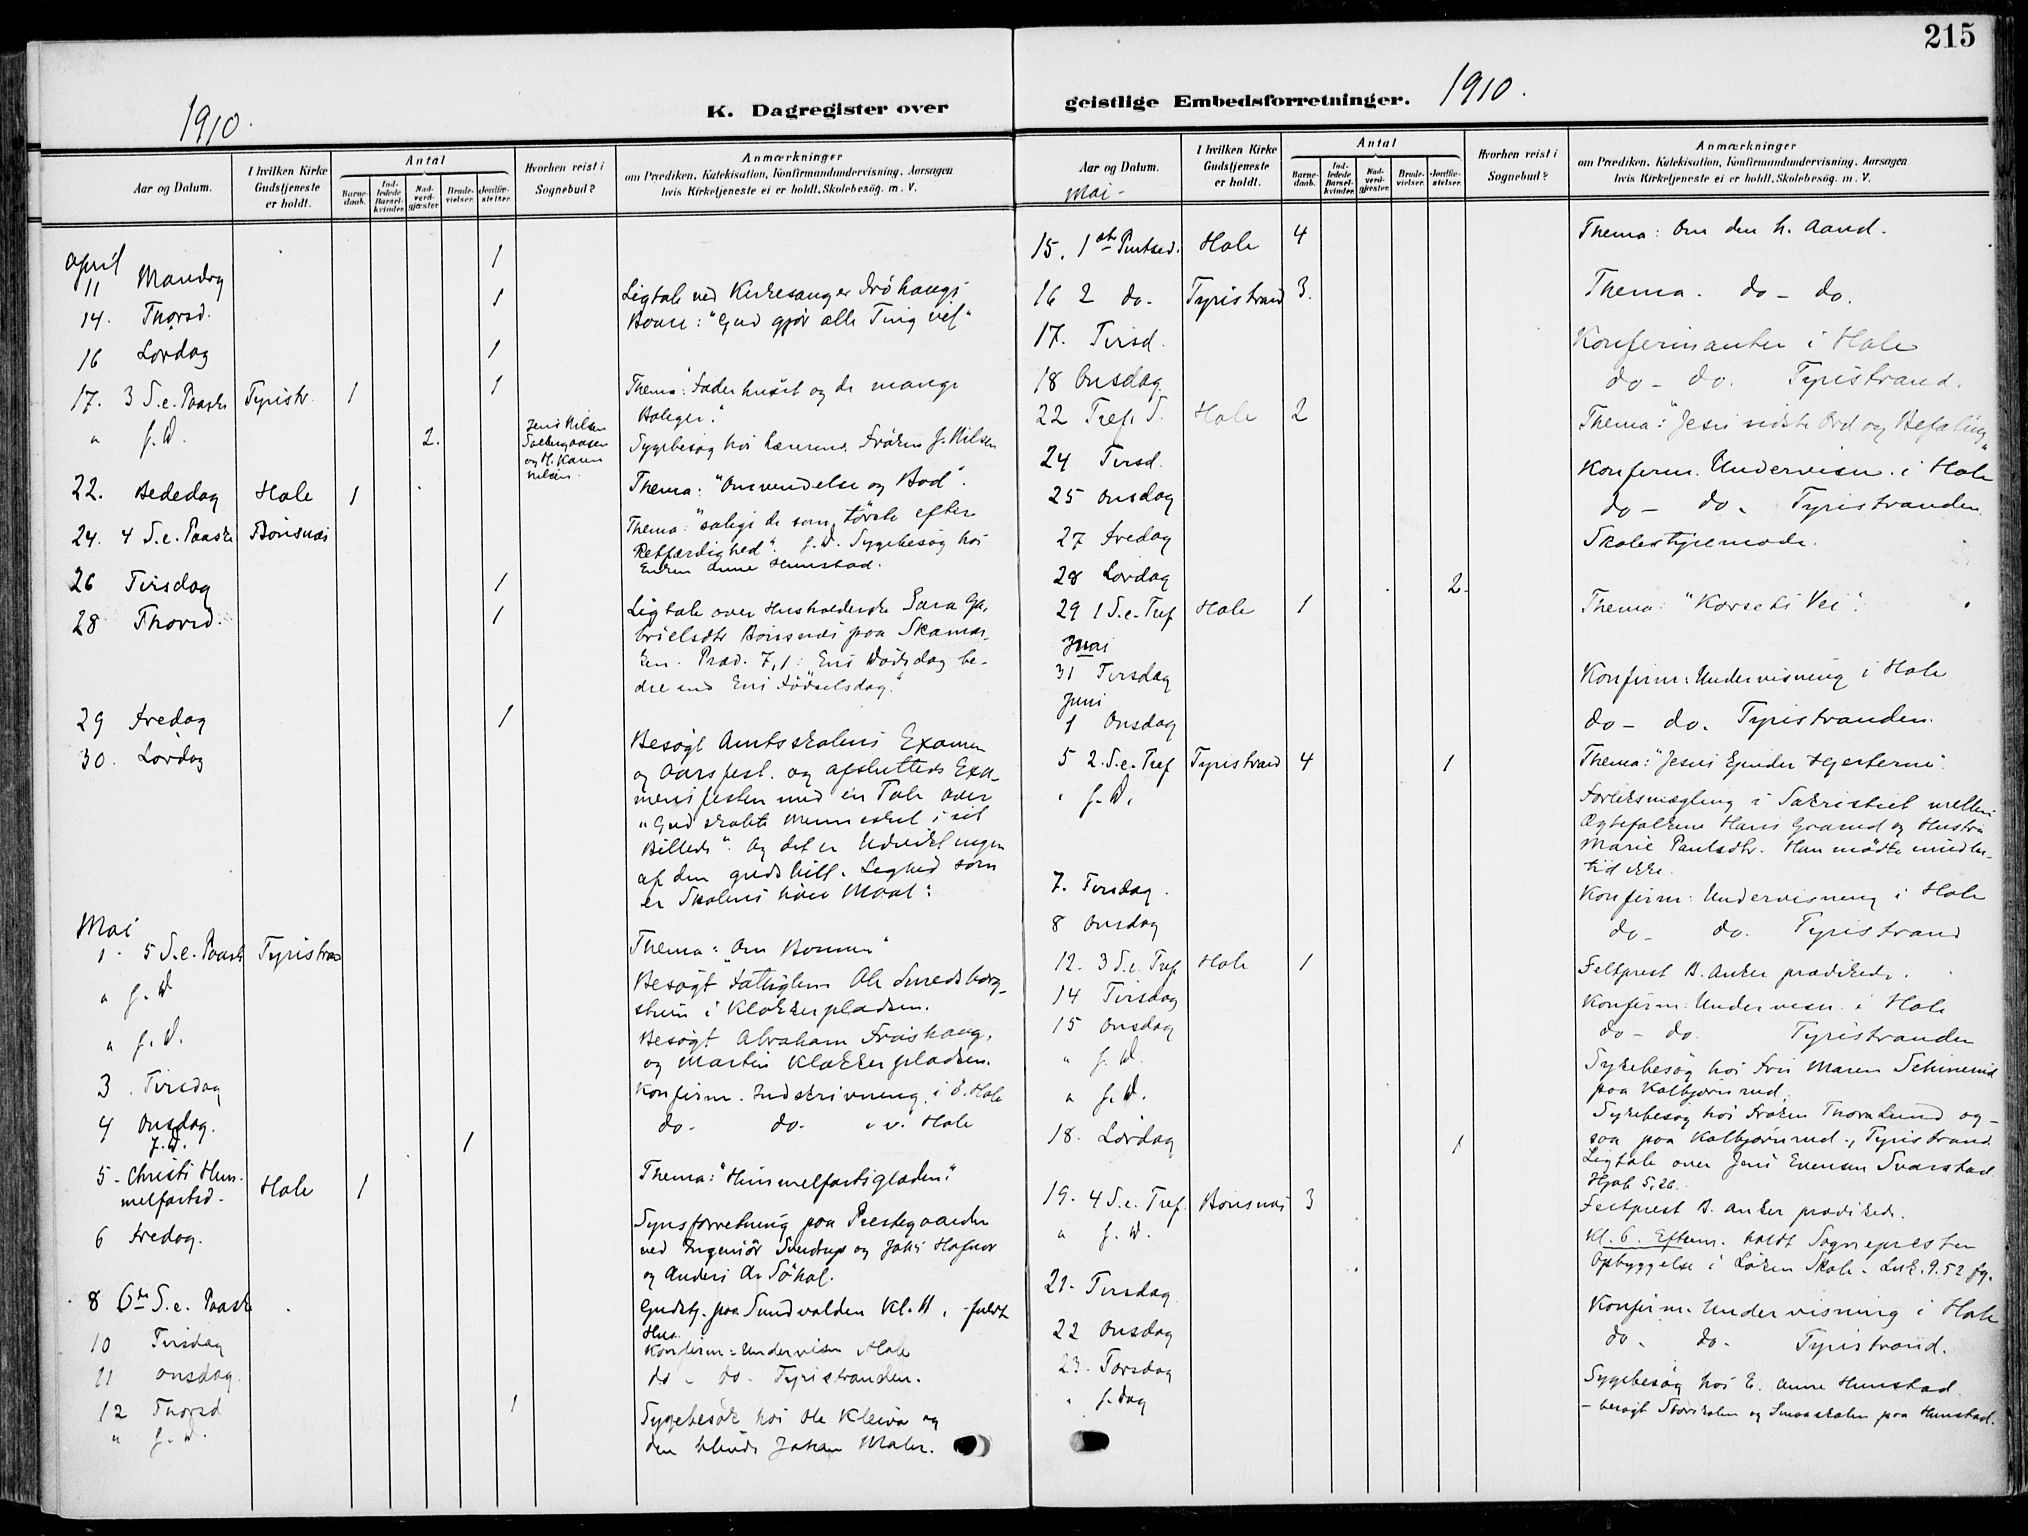 215
1910.
K. Dagregister over
Aar og Datum.
I hvilken Kirke Gudstjeneste er holdt.
Antal
Barnedaab.
Indledede Barselkvinder.
Nadverdgjæster.
Brudevielser.
Jordfæstelser.
Hvorhen reist i Sognebud?
Anmærkninger
om Prædiken, Katekisation, Konfirmandundervisning, Aarsagen
hvis Kirketjeneste ei er holdt, Skolebesøg. m. V.
April
11 Mandag 1
14. Thorsd. 1 Ligtale ved Kirkesanger
"Gud gjør alle Ting vel"
16 Lørdag 1
17. 3 S. e. Paaske Tyristr. 1 1 Thema: "Faderhuset og de mange
Boliger."
" s. D. 2. Sygebesøg hos Frøken J. Nilsen
22. Bededag Hole 1 Thema: "Omvendelse og Bod".
24. 4 S. e. Paaske Bønsnæs Thema: "salige de som tørste efter
Retfærdighed". s. D. Sygebesøg hos
Enken Anne Hunstad.
26 Tirsdag 1
28 Thorsd. 1 Ligtale over Husholderske Sara Ga-
brielsdtr Bønsnæs paa
Præd. 7,1: Ens Dødsdag be-
dre end Ens Fødselsdag."
29 Fredag 1
30. Lørdag Besøgt Amtsskolens Examen
og Aarsfest. og afsluttede Exa-
mensfesten med en Tale over
"Gud skabte Mennesket i sit
Billede". Og det er Udviklingen
af den gudsbill. Lighed som
er Skolens høie Maal:
Mai
1. 5 S. e. Paaske Tyristran Thema: "Om Bønnen"
" s. D Besøgt Fattiglem Ole
i Klokkerpladsen.
" s. D. Besøgt Abraham Frøishaug.
og Martin Klokkerpladsen.
3. Tirsdag Konfirm. Indskrivning i Ø. Hole
4 Onsdag. do- do- " v. Hole
s. D. 1
5- Christi Him-
melfartsd- Hole 1 Thema: "Himmelfartsglæden."
6 Fredag. Synsforretning paa Prestegaarden
ved Ingeniør og
og Anders
8 6te S. e. Paaske Gudstj. paa Sundvolden Kl. 11. - fuldt
Hus.
10 Tirsdag Konfirm: Undervisn Hole
11 Onsdag. do - do - Tyristranden.
12 Thorsd 1
" s. D. Sygebesøk hos Ole Kleiva og
den blinde Johan
geistlige Embedsforretninger.
1910.
Aar og Datum.
I hvilken Kirke Gudstjeneste er holdt.
Antal
Barnedaab.
Indledede Barselkvinder.
Nadverdgjæster.
Brudevielser.
Jordfæstelser.
Hvorhen reist i Sognebud?
Anmærkninger
om Prædiken, Katekisation, Konfirmandundervisning, Aarsagen
hvis Kirketjeneste ei er holdt, Skolebesøg. m. V.
Mai -
15. 1ste Pintsed. Hole 4 Thema: Om den h. Aand.
16 2 do- Tyristrand 3. Thema. do - do.
17. Tirsd. Konfirmanter i Hole
18 Onsdag. do - do. Tyristrand.
22 Tref. S. Hole 2 Thema: "Jesu sidste Ord og Befaling"
24 Tirsd. Konfirm. Undervisn. i Hole
25 Onsdag do - do. Tyristranden
27 Fredag Skolestyremøde.
28 Lørdag 2.
29 1 S. e. Tref Hole 1 Thema: "Korsets Vei".
31 Tirsdag Konfirm: Undervisning i Hole
Juni
1 Onsdag do - do. Tyristranden.
5 2. S. e. Tref Tyristrand 4 1 Thema: "Jesus kjender Hjerterne".
" s. D. Forliksmægling i Sakristiet mellem
Ægtefolkene Hans og Hustru
Marie Paulsdtr. Han mødte imidler-
tid ikke.
7. Tirsdag. Konfirm: Undervisning i Hole
8 Onsdag do- do. Tyristrand
12. 3 S. e. Tref Hole 1 Feltprest B. Anker prædikede.
14 Tirsdag Konfirm: Undervisn. i Hole
15 Onsdag do - do. Tyristranden
" s. D. Sykebesøg hos Fru Maren
paa Kolbjørnrud.
" s. D. Sykebesøg hos Frøken Thora Lund og-
saa paa Kolbjørnrud, Tyristrand.
18. Lørdag 1 Ligtale over Jens Evensen Svarstad
Hjob 5,26.
19. 4 S. e. Tref. Bønsnæs 3 Feltprest B. Anker prædikede.
" s. D. Kl. 6. Efterm. holdt Sognepresten
Opbyggelse i Løken Skole. Luk. 9.52 fg.
21. Tirsdag Konfirm. Undervisning i Hole
22 Onsdag do - do - Tyristrand.
23. Torsdag Sygebesøg hos E. Anne Hunstad
" s. Dag - besøgt Storskolen og Smaaskolen paa Hunstad.